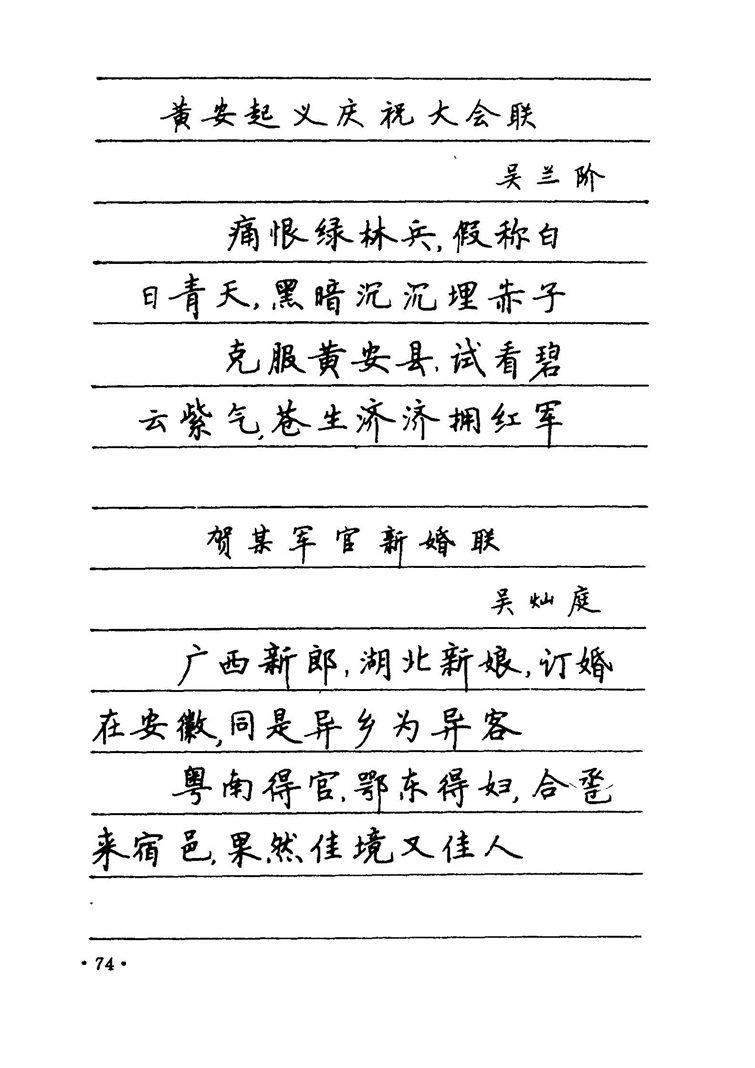 黄安起义庆祝大会联
吴兰阶
痛恨绿林兵,假称白
日青天,黑暗沉沉埋赤子
克服黄安县,试看碧
云紫气,苍生济济拥红军
贺某军官新婚联
吴灿庭
广西新郎,湖北新娘,订婚
在安徽,同是异乡为异客
粤南得官,鄂东得妇,合卺
来宿邑,果然佳境又佳人
·74·